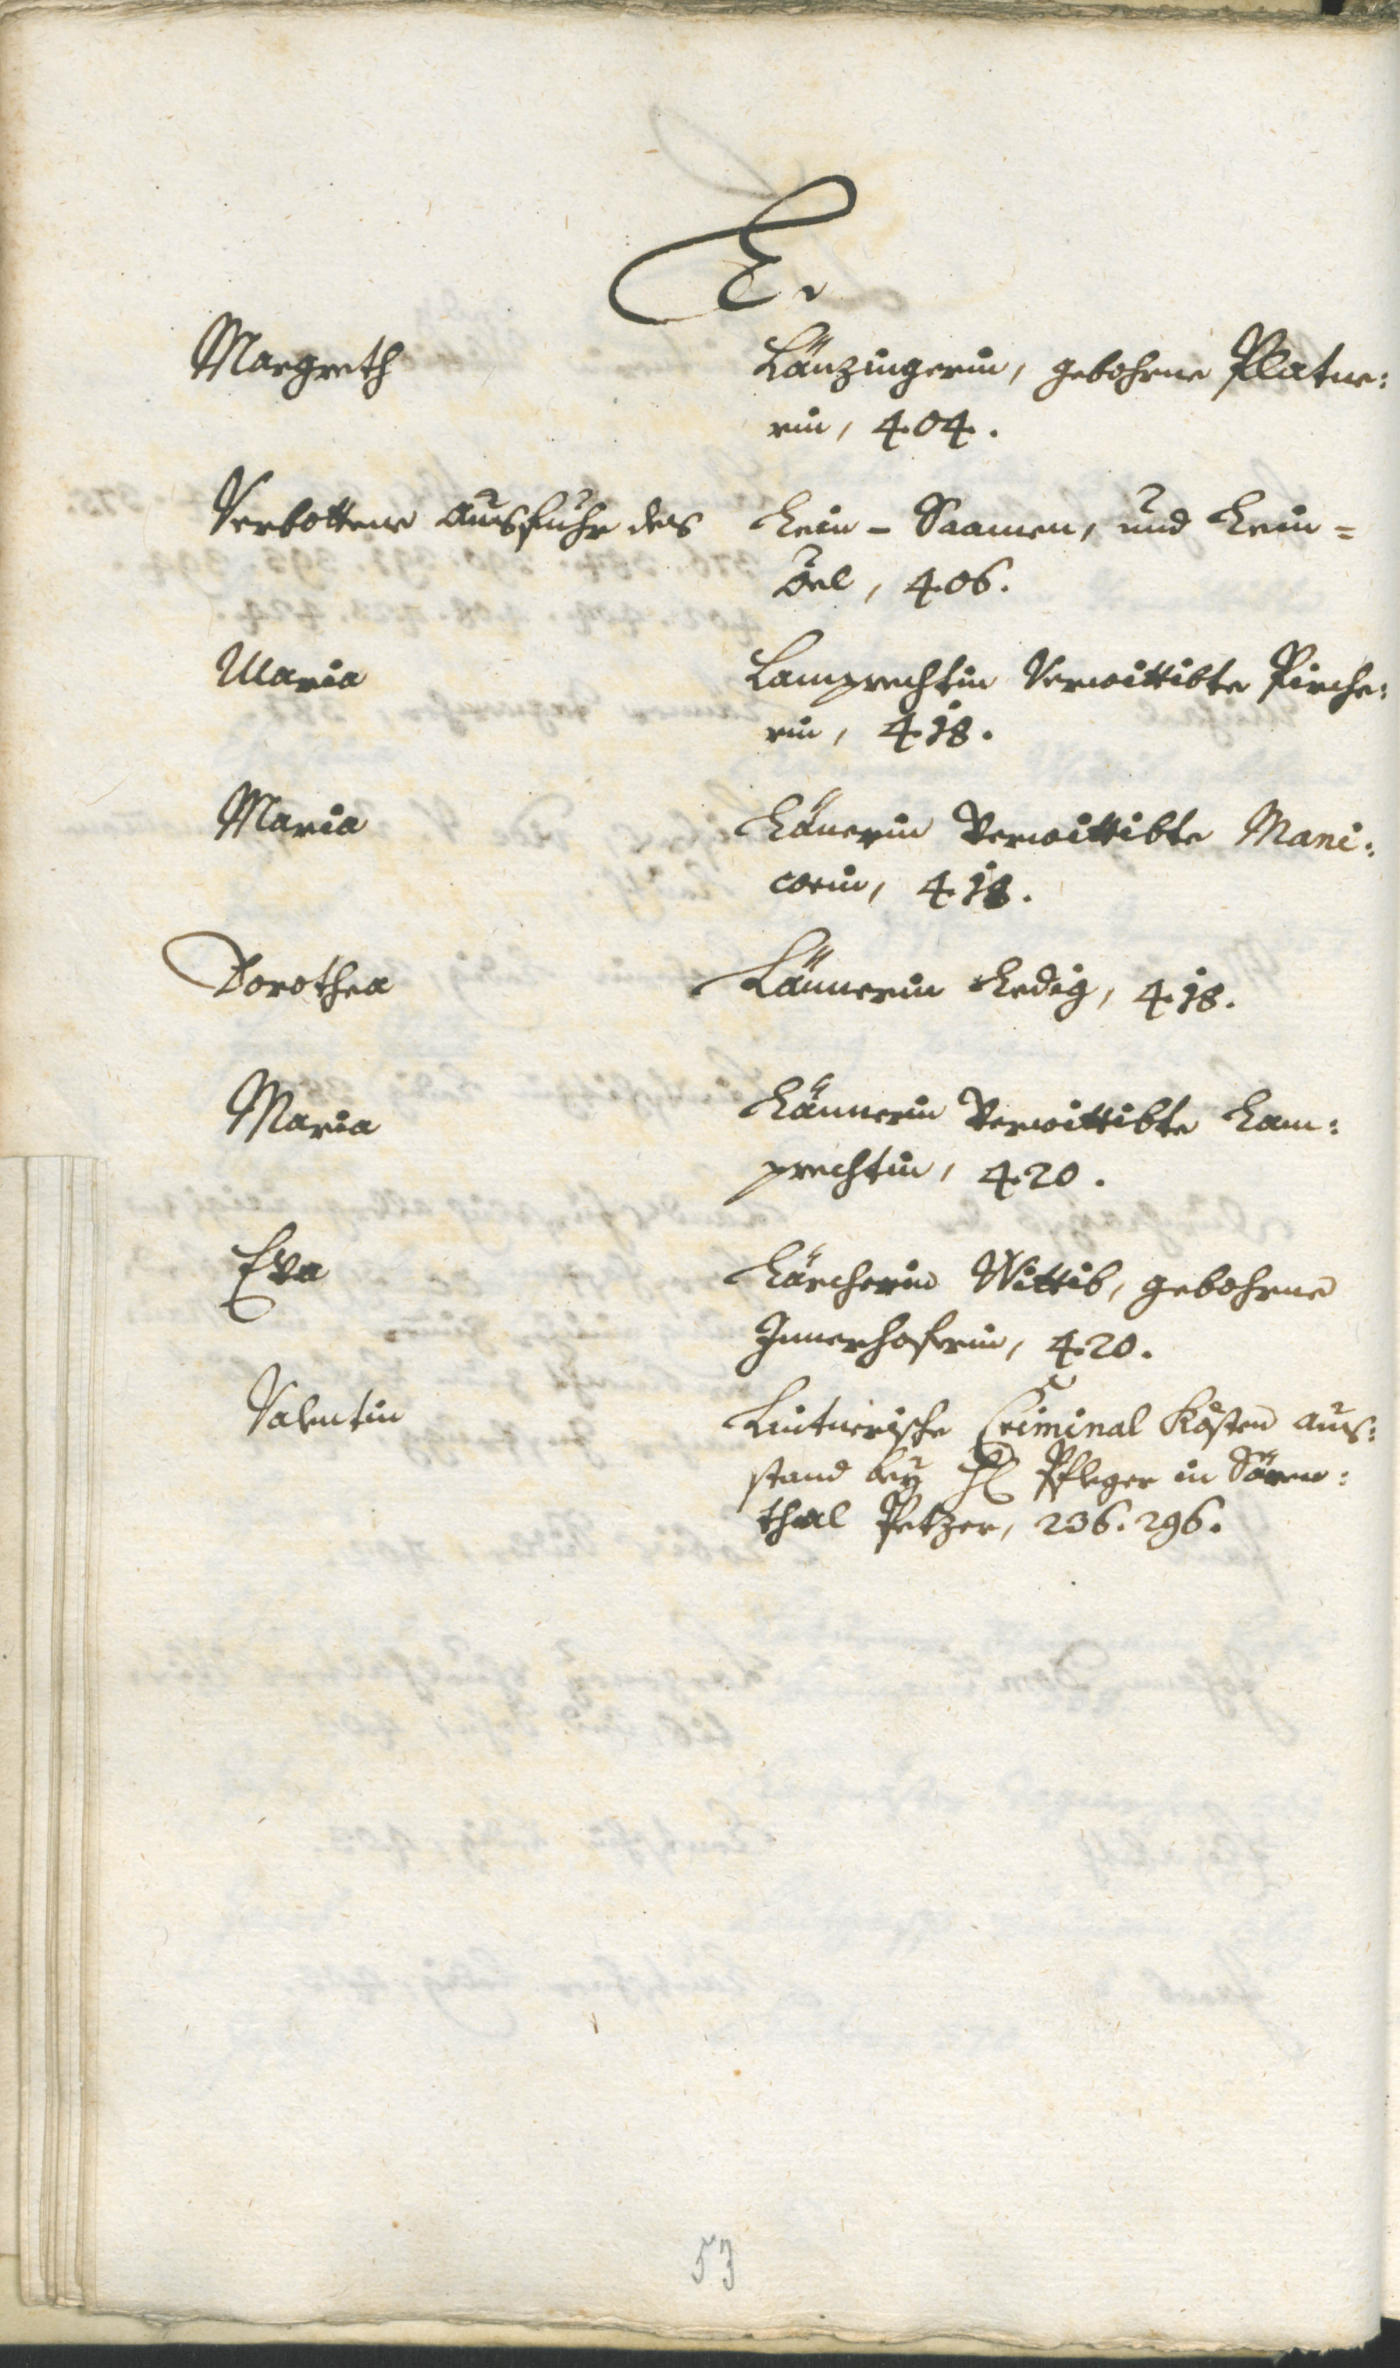 L.
Margreth Länzingerin, gebohrne Platne:
rin, 404.
Verbottene Ausfuhr des Lein-Saamen, und Lein=
öel, 406.
Maria Lamprechtin Verwittibte Pirche:
rin, 418.
Maria Länerin Verwittibte Mani:
corin, 418.
Dorothea Lännerin Ledig, 418.
Maria Lännerin Verwittibte Lam:
prechtin, 420.
Eva Lärcherin Wittib, gebohrne
Innerhoferin, 420.
Valentin Lintnerische Criminal Kösten aus:
stand beÿ H Pfleger in Sären:
thal Petzer, 236. 296.
53